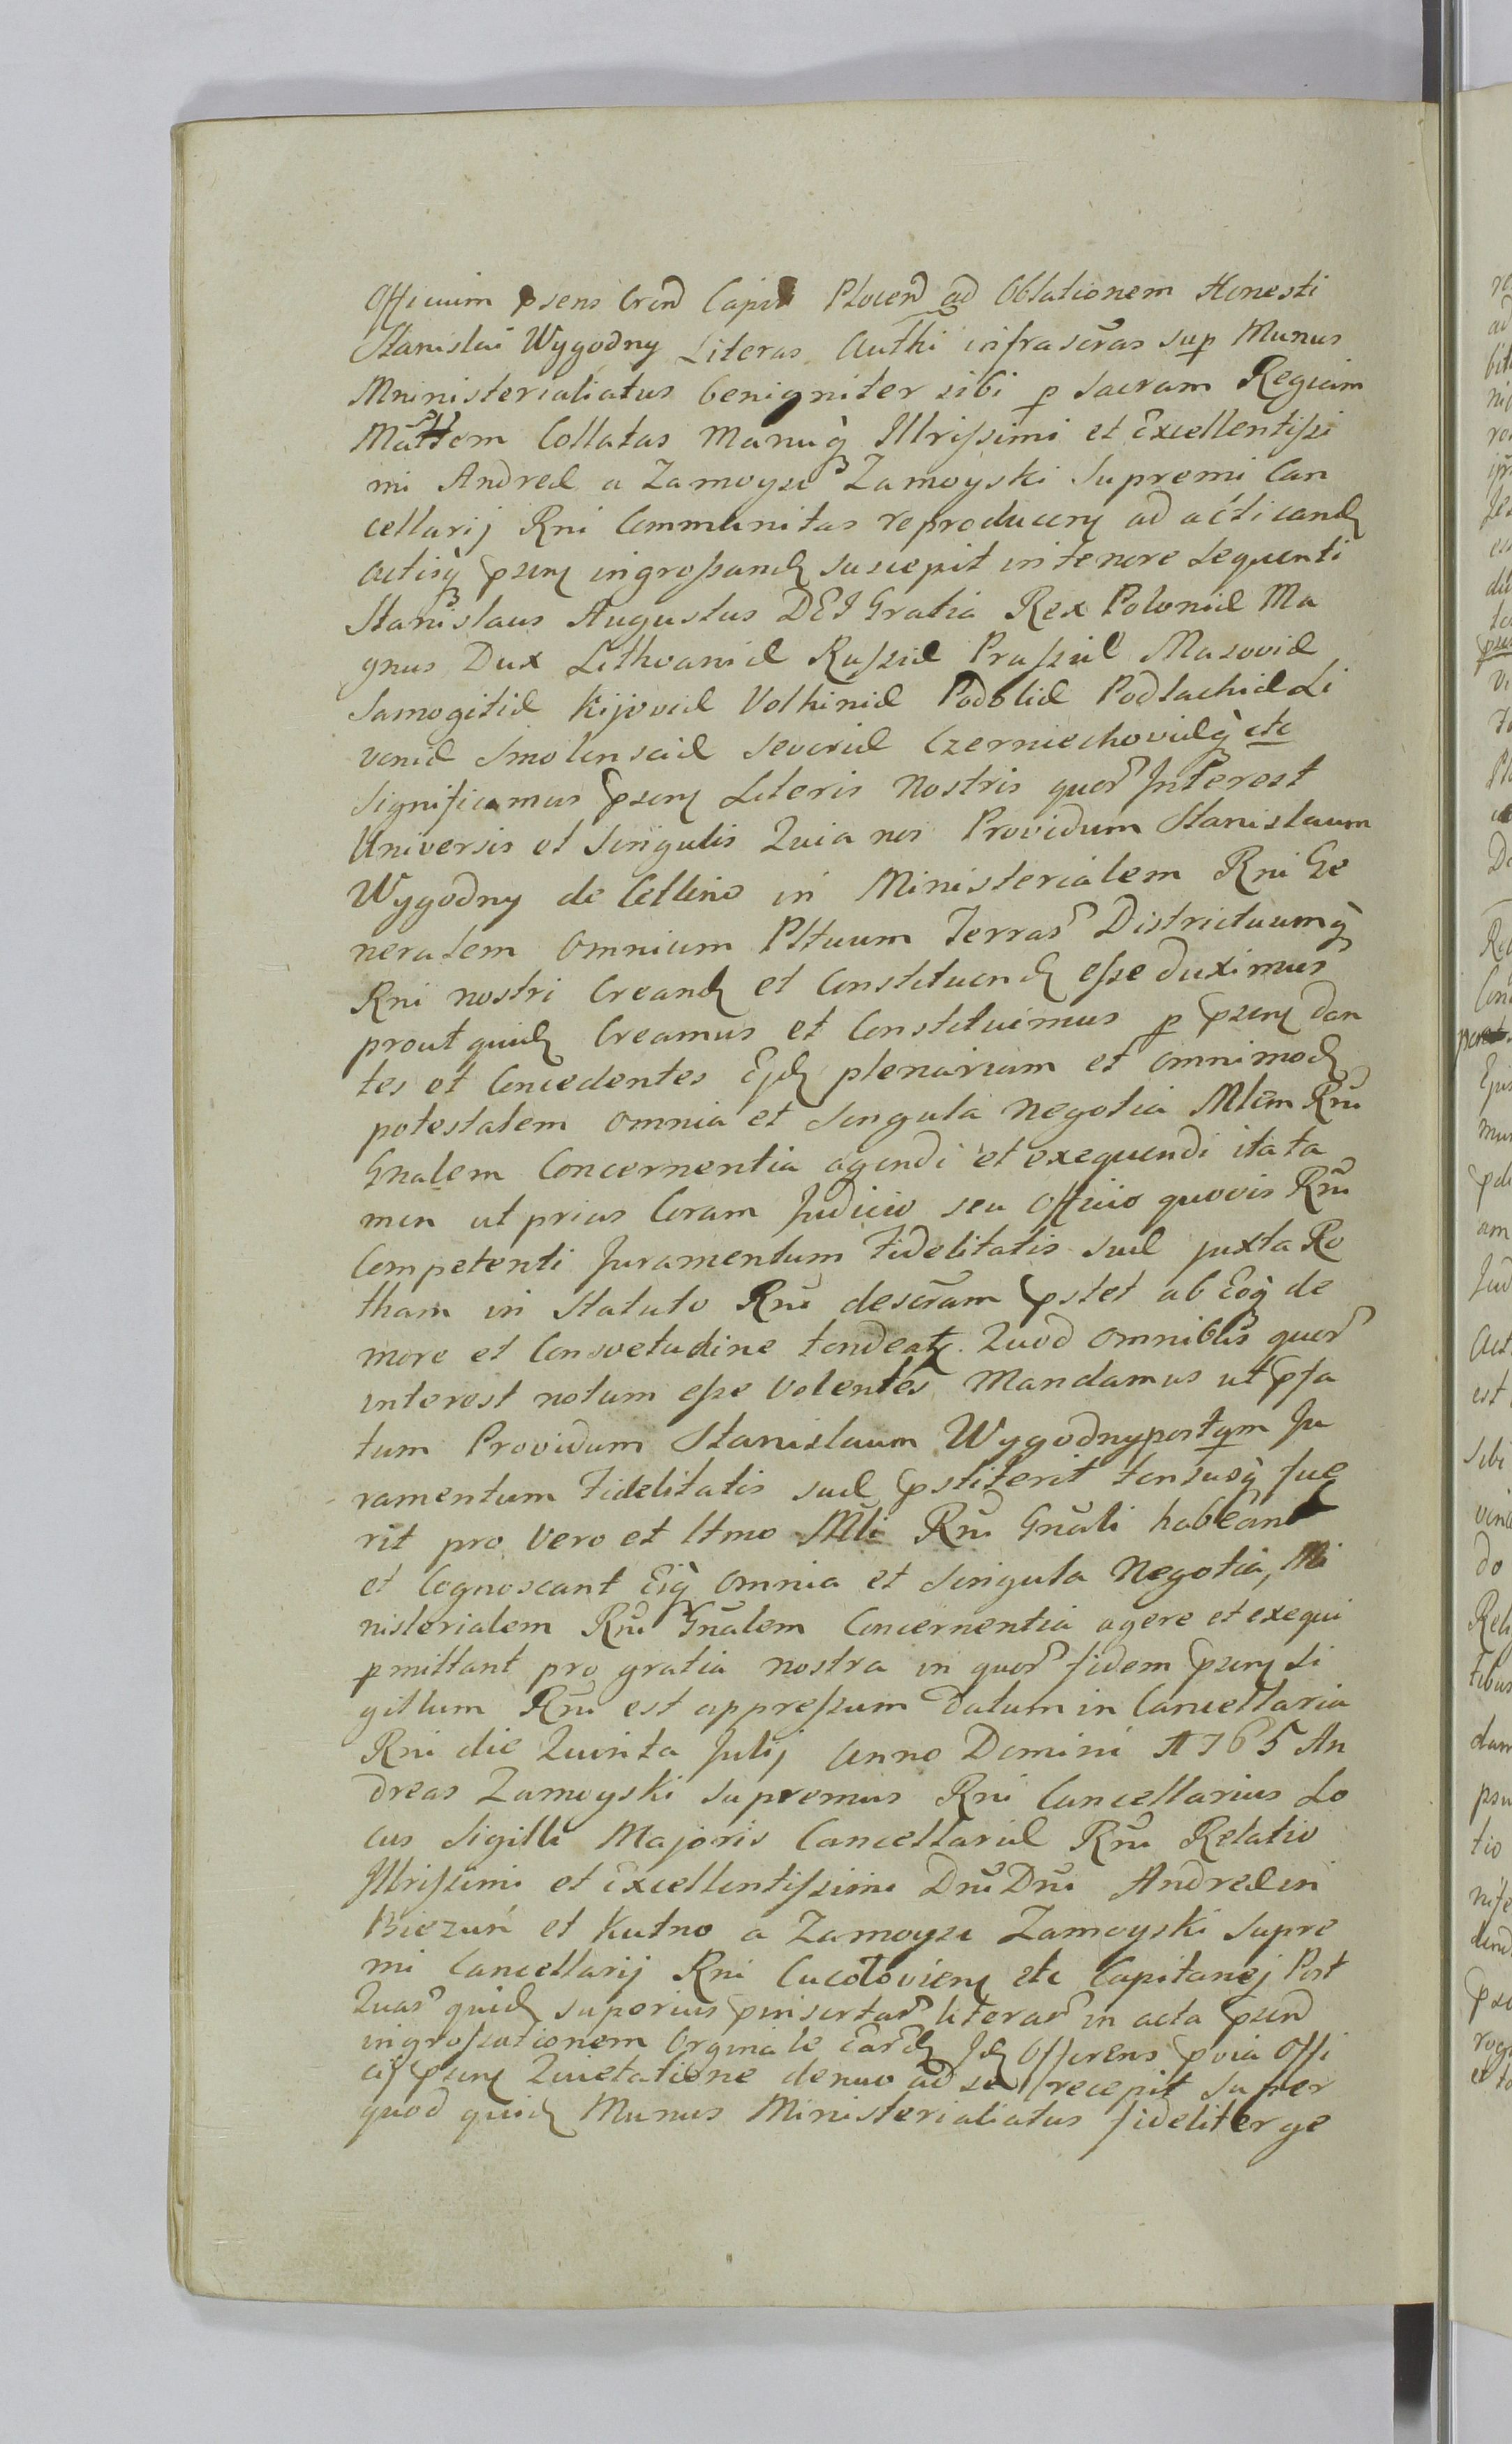 Officium psens Crend Capit Plocen ad Oblationem Honesti
Stanislai Wygodny Literas Authi infrascras sup Munus
Mninisterialiatus benigniter sibi p Sacram Regiam
Mattem Collatas Manuq Illrissimi et Excellentissi
mi Andreæ a Zamoyse Zamoyski Supremi Can
cellarij Rni Communitas reproducen ad acticand
actisq psen ingrossand suscepit in tenore sequenti
Stanislaus Augustus DEI Gratia Rex Poloniæ Ma
gnus Dux Lithvaniæ Russiæ Prussiæ Masoviæ
Samogitiæ Kijoviæ Volhiniæ Podoliæ Podlachiæ Li
voniæ Smolensciæ Severiæ Czerniechoviæq etc
Significamus psen Literis Nostris quor Interest
Universis et Singulis Quia nos Providum Stanislaum
Wygodny de Cellino in Ministerialem Rni Ge
neralem Omnium Pltuum Terrar Districtuumq
Rni nostri Creand et Constituend esse duximus
prout quid Creamus et Constituimus p psen Dan
tes et Concedentes Ejd plenariam et omnimod
potestatem omnia et Singula Negotia Mlem Rni
Gnalem Concernentia agendi et exequendi ita ta
men ut prius Coram Judicio seu Officio quovis Rni
Competenti Juramentum Fidelitatis suæ juxta Ro
tham in Statuto Rni descram pstet ab Eoq de
more et Consvetudine tondeat. Quod omnibus quor
interest notum esse Volentes Mandamus ut pfa
tum Providum Stanislaum Wygodny postqm Ju
ramentum Fidelitatis suæ pstiterit tonsusq fue
rit pro Vero et ltmo Mli Rni Gnali habeant
et Cognoscant Eiq omnia et Singula Negotia, Mi
nisterialem Rni Gnalem Concernentia agere et exequi
pmittant pro gratia nostra in quor fidem psen Si
gillum Rni est appressum Datum in Cancellaria
Rni die Quinta Julij Anno Domini 1765 An
dreas Zamoyski Supremus Rni Cancellarius Lo
cus Sigilli Majoris Cancellariæ Rni Relatio
Illrissimi et Excellentissimi Dni Dni Andreæ in
Biezuń et Kutno a Zamoyse Zamoyski Supre
mi Cancellarij Rni etc Capitanej Post
Quar quid superius pinsertar literar in acta psen
ingrossationem Orginale Eard Id Offerens pvia Offi
cij psen Quietatione denuo ad se recepit Super
quod quid Munus Ministerialiatus fideliter ge